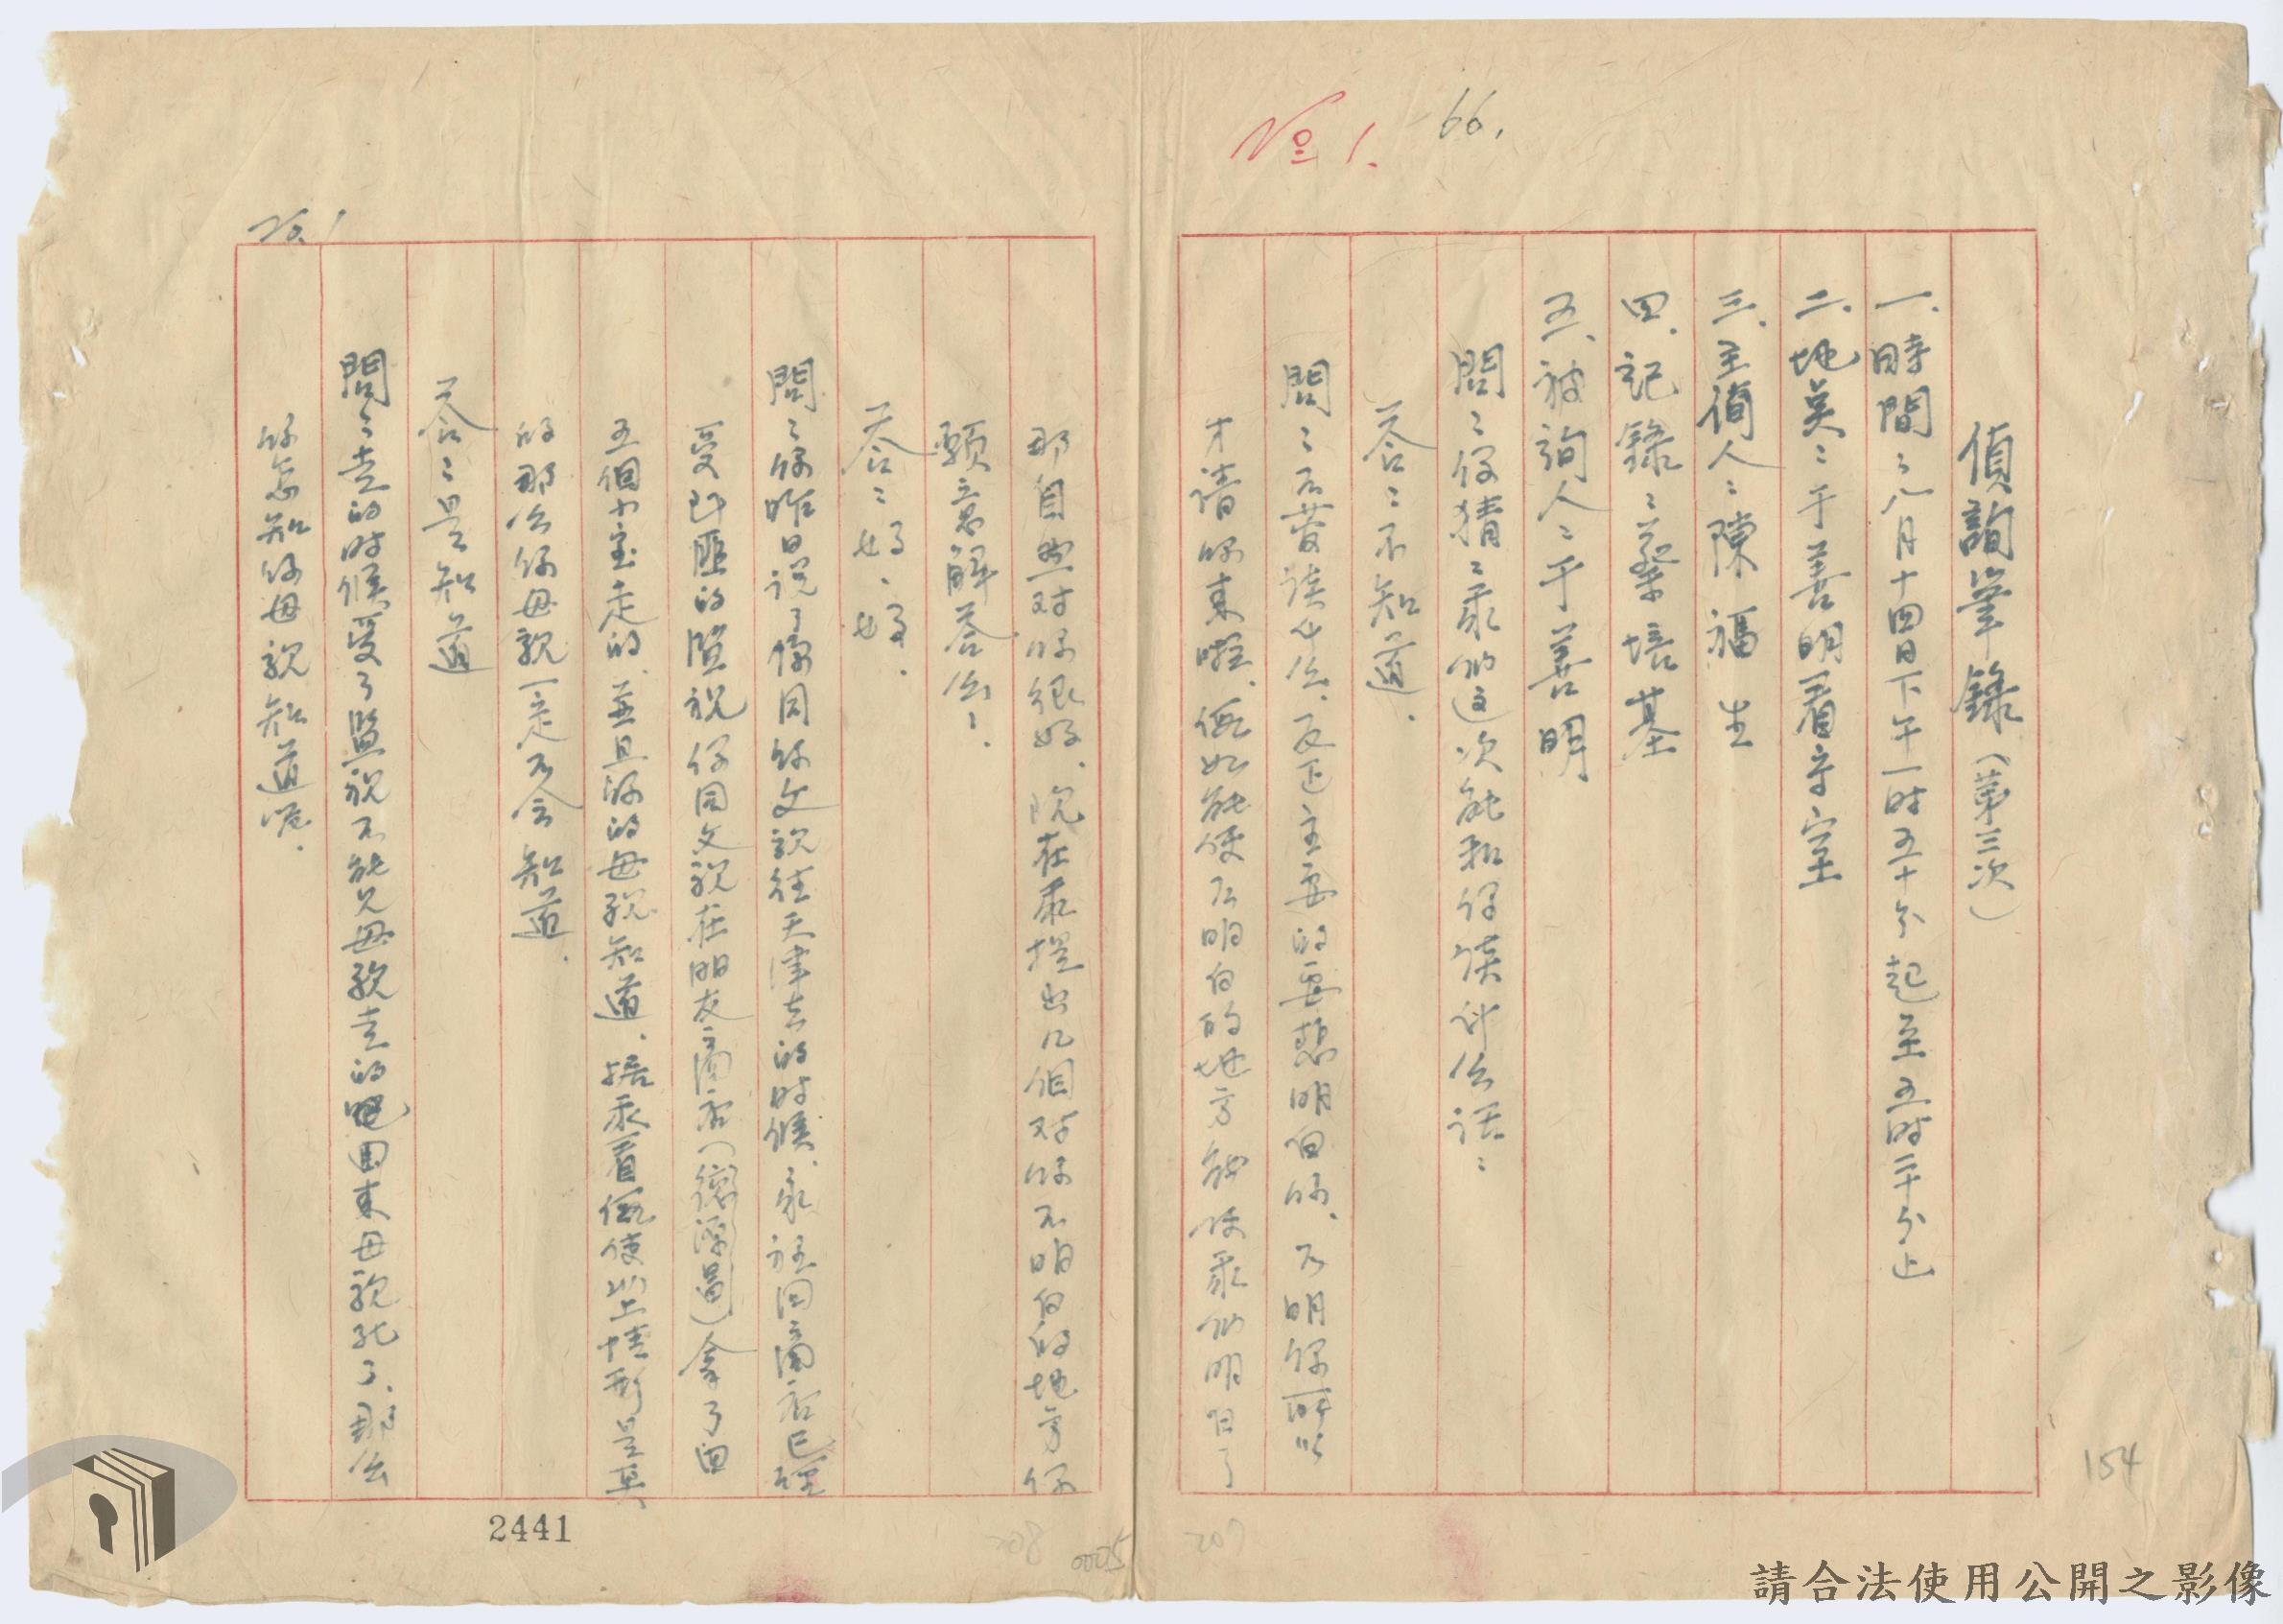 № 1.
66.
偵詢筆錄(第三次)
一、時間:八月十四日下午一時五十分起至五時二十分止
二、地點:于善明看守室
三、主偵人:陳福生
四、記錄:蔡培基
五、被詢人:于善明
問:你猜:我們這次能和你談什么話:
答:不知道.
問:不要談什么、反正主要的要想明白你、不明你所以
才請你來啦、假如能使不明白的地方能使我們明白了
那自然对你很好、現在我提出几個对你不明白的地方你
願意解答么!.
答:好、好.
問:你昨日說了你同你父親往天津去的时候、家住同蒲
受 匪的監視你同父親在朋友 (德潭圖)拿了由
五個 走的、並且你的母親知道、據我看假使以上情形是真
的那么你母親一定不会知道.
答:是知道
問:走的时候受了監視不能見母親走的吧回來母親死了、那么
你怎知你母親知道呢.
No. 1
2441
208
0025
207
154
請合法使用公開之影像